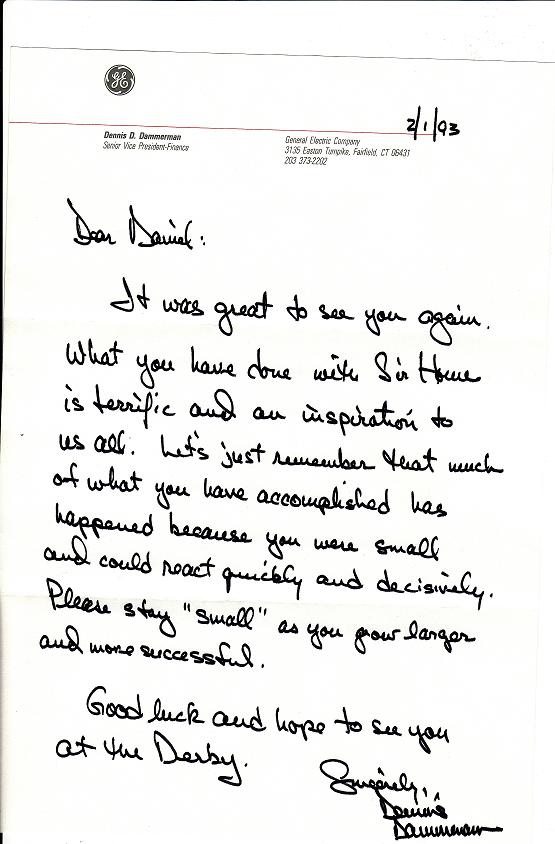 GE
2/1/93
Dennis D. Dammerman
Senior Vice President-Finance
General Electric Company
3135 Easton Turnpike, Fairfield, CT 06431
203 373-2202
Dear Daniel:
It was great to see you again.
What you have done with Sir Home
is terrific and an inspiration to
us all. Let's just remember that much
of what you have accomplished has
happened because you were small
and could react quickly and decisively.
Please stay "small" as you grow larger
and more successful.
Good luck and hope to see you
at the Derby.
Sincerely,
Dennis
Dammerman